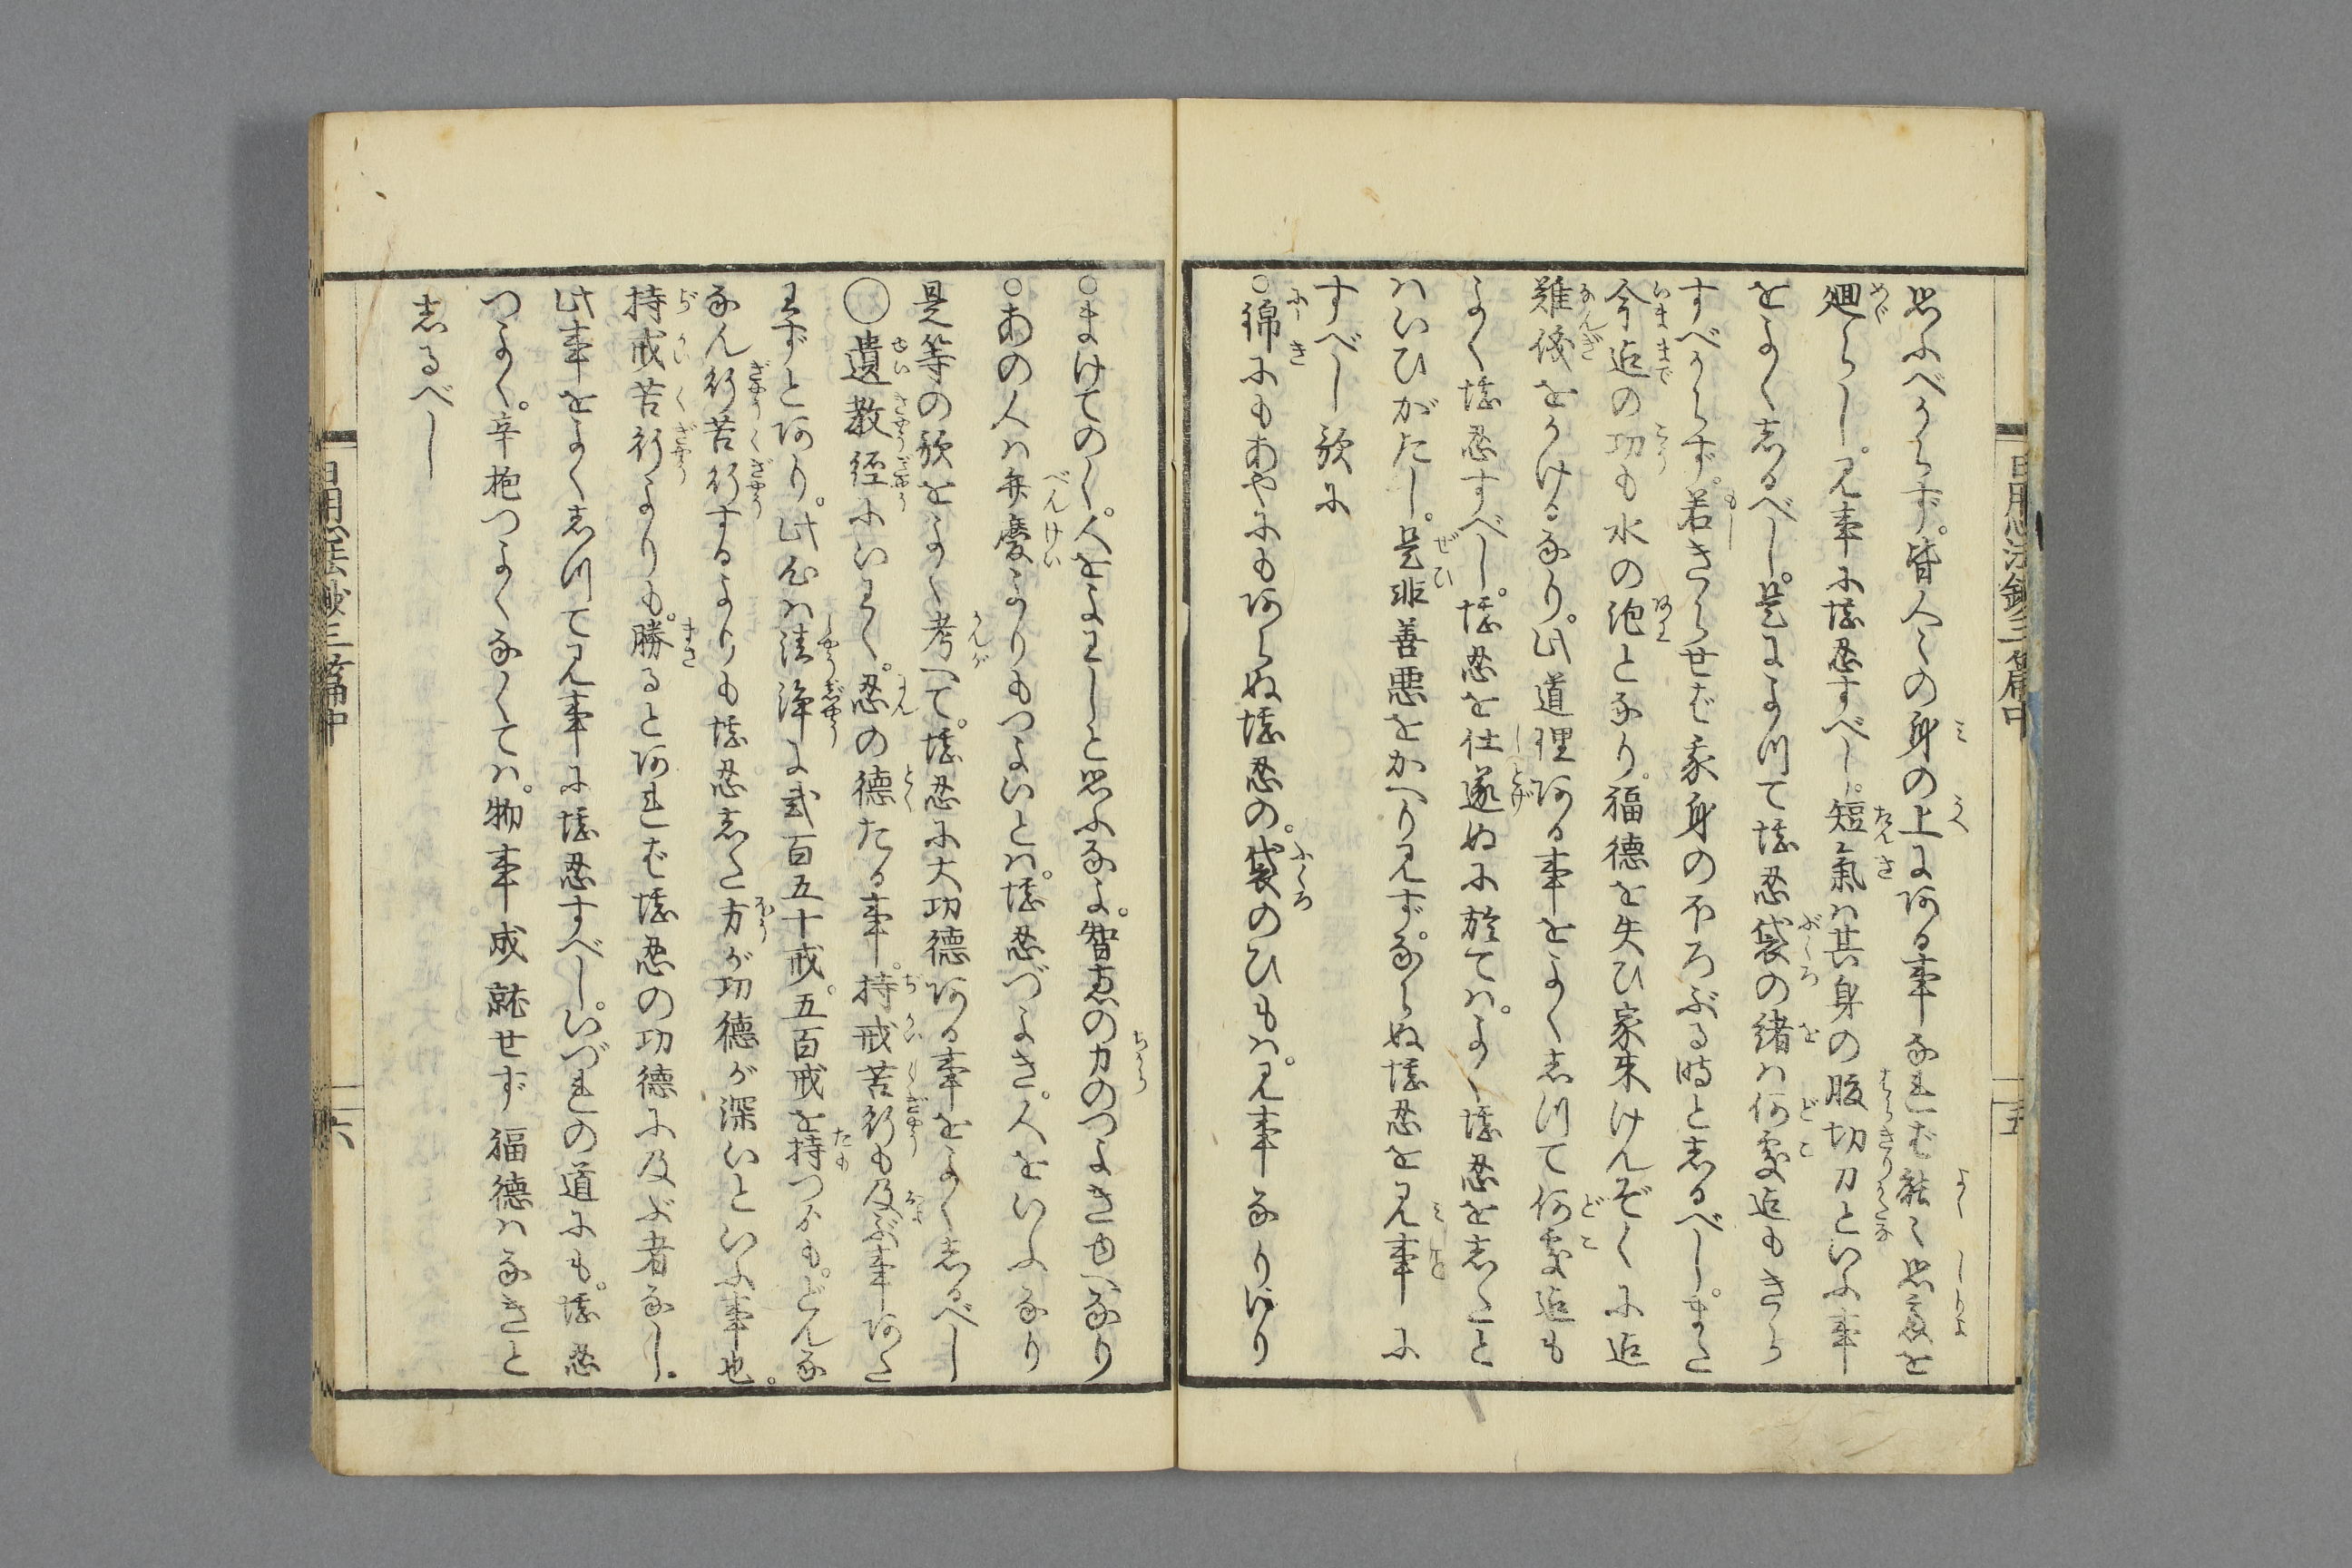 思ふべからず。皆人々の身の上に阿る事なれば能々思慮を
廻らし。見事に堪忍すべし。短氣ハ其身の腹切刀といふ事
をよく志るべし。是によつて堪忍袋の緒ハ何處迄もきら
すべからず。若きらせば家身のほろぶる時と志るべし。また
今迄の功も水の泡となり。福德を失ひ家来けんぞくに迄
難儀をかける也り。此道理阿る事をよく志つて何處迄も
よく堪忍すべし。堪忍を仕遂ぬに於てハ。よく堪忍を志たと
ハいひがたし。是非善悪をかへり見ず。ならぬ堪忍を見事に
すべし歌に
○錦にもあやにも阿らぬ堪忍の。袋のひもハ。見事なりけり
日用心法鈔三篇中
五
○まけてのく。人をよわしと思ふなよ。智恵の力のつよきゆへなり
○あの人ハ弁慶よりもつよいとハ。堪忍づよき。人をいふなり
是等の歌をよく考へて。堪忍に大功德阿る事をよく志るべし
○遺教經にいわく。忍の德たる事。持戒苦行も及ぶ事阿た
わずと阿り。此心ハ清浄に弐百五十戒。五百戒を持つかも。どんな
なん行苦行するよりも堪忍志た方が功德が深いといふ事也。
持戒苦行よりも。勝ると阿れば堪忍の功德に及ぶ者なし。
此事をよく志つて見事に堪忍すべし。いづれの道にも。堪忍
つよく。辛抱つよくなくてハ。物事成就せず福德ハなきと
志るべし
日用心法鈔三篇中
六